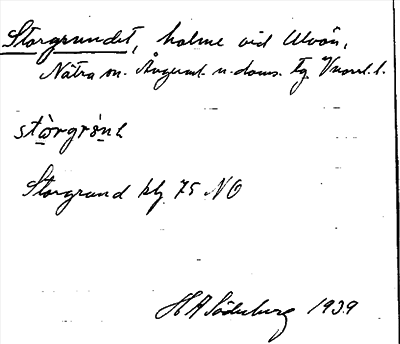 Storgrundet, holme vid Ulvön,
Nätra sn. Ångerml. n. doms. tg. Vnorrl. l.
stòrgrónt
Storgrund kbl 75 NO
H A Söderberg 1939